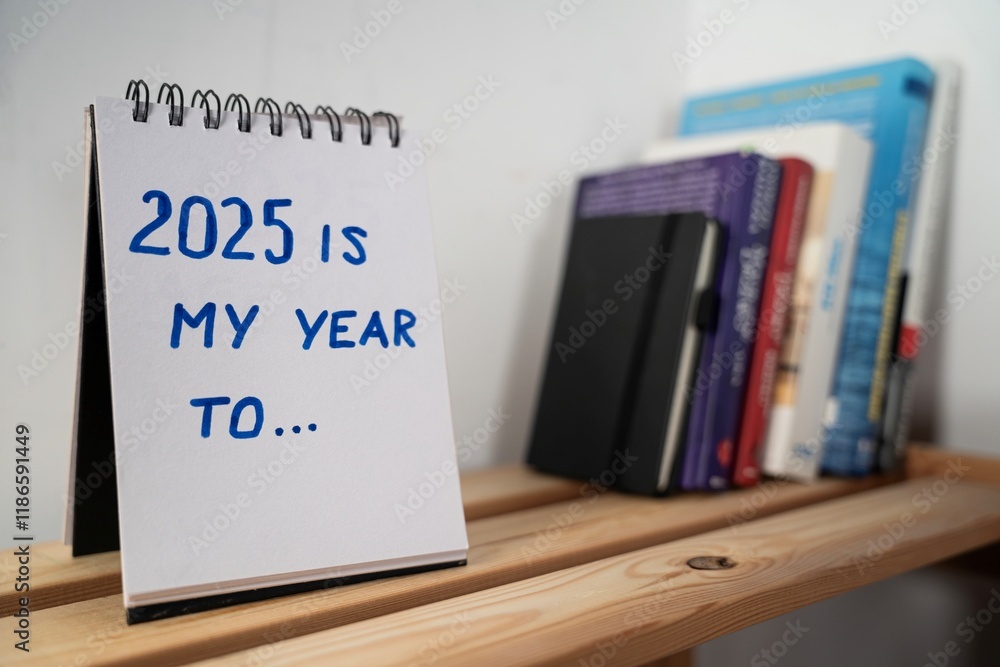 2025 IS
MY YEAR
TO...
Adobe Stock | #1186591449